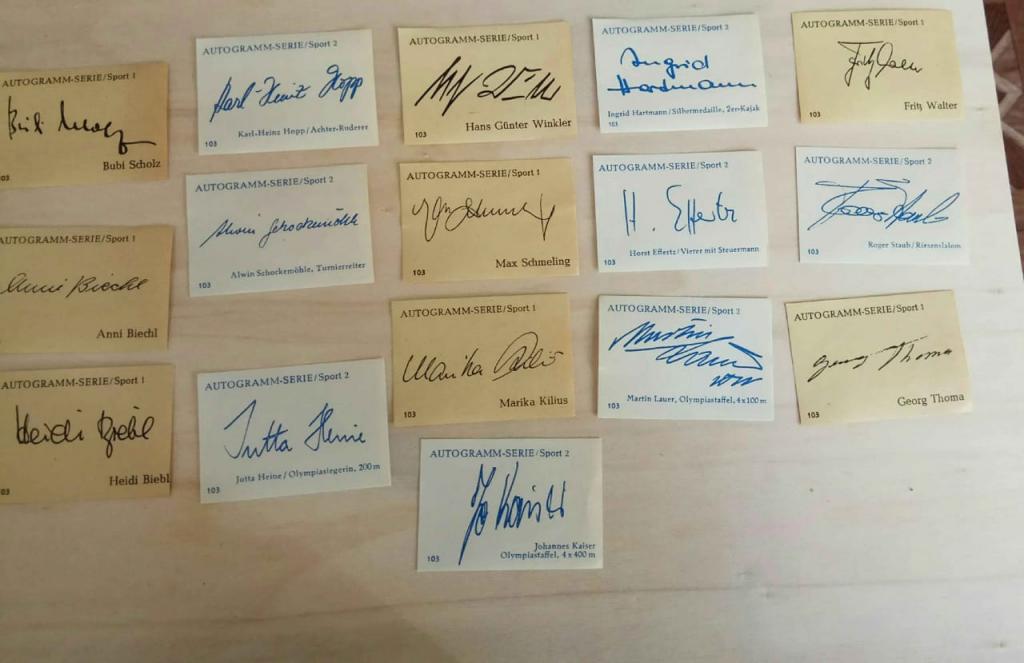 AUTOGRAMM-SERIE/Sport 1
Bubi Scholz
Bubi Scholz
103
AUTOGRAMM-SERIE/Sport 1
Anni Biechl
Anni Biechl
AUTOGRAMM-SERIE/Sport 1
Heidi Biebl
Heidi Biebl
103
AUTOGRAMM-SERIE/Sport 2
Karl-Heinz Hopp
Karl-Heinz Hopp/Achter-Ruderer
103
AUTOGRAMM-SERIE/Sport 2
Alwin Schockemöhle
Alwin Schockemöhle, Turnierreiter
103
AUTOGRAMM-SERIE/Sport 2
Jutta Heine
Jutta Heine/Olympiasiegerin, 200 m
103
AUTOGRAMM-SERIE/Sport 1
Hans Günter Winkler
103
AUTOGRAMM-SERIE/Sport 1
Max Schmeling
103
AUTOGRAMM-SERIE/Sport 1
Marika Kilius
Marika Kilius
103
AUTOGRAMM-SERIE/Sport 2
Johannes Kaiser
Olympiastaffel, 4 x 400 m
103
AUTOGRAMM-SERIE/Sport 2
Ingrid
Hartmann
Ingrid Hartmann/Silbermedaille, 2er-Kajak
103
AUTOGRAMM-SERIE/Sport 2
H. Effertz
Horst Effertz/Vierer mit Steuermann
103
AUTOGRAMM-SERIE/Sport 2
Martin
Lauer
Martin Lauer, Olympiastaffel, 4 x 100 m
103
AUTOGRAMM-SERIE/Sport 1
Fritz Walter
103
AUTOGRAMM-SERIE/Sport 2
Roger Staub/Riesenslalom
103
AUTOGRAMM-SERIE/Sport 1
Georg Thoma
Georg Thoma
103